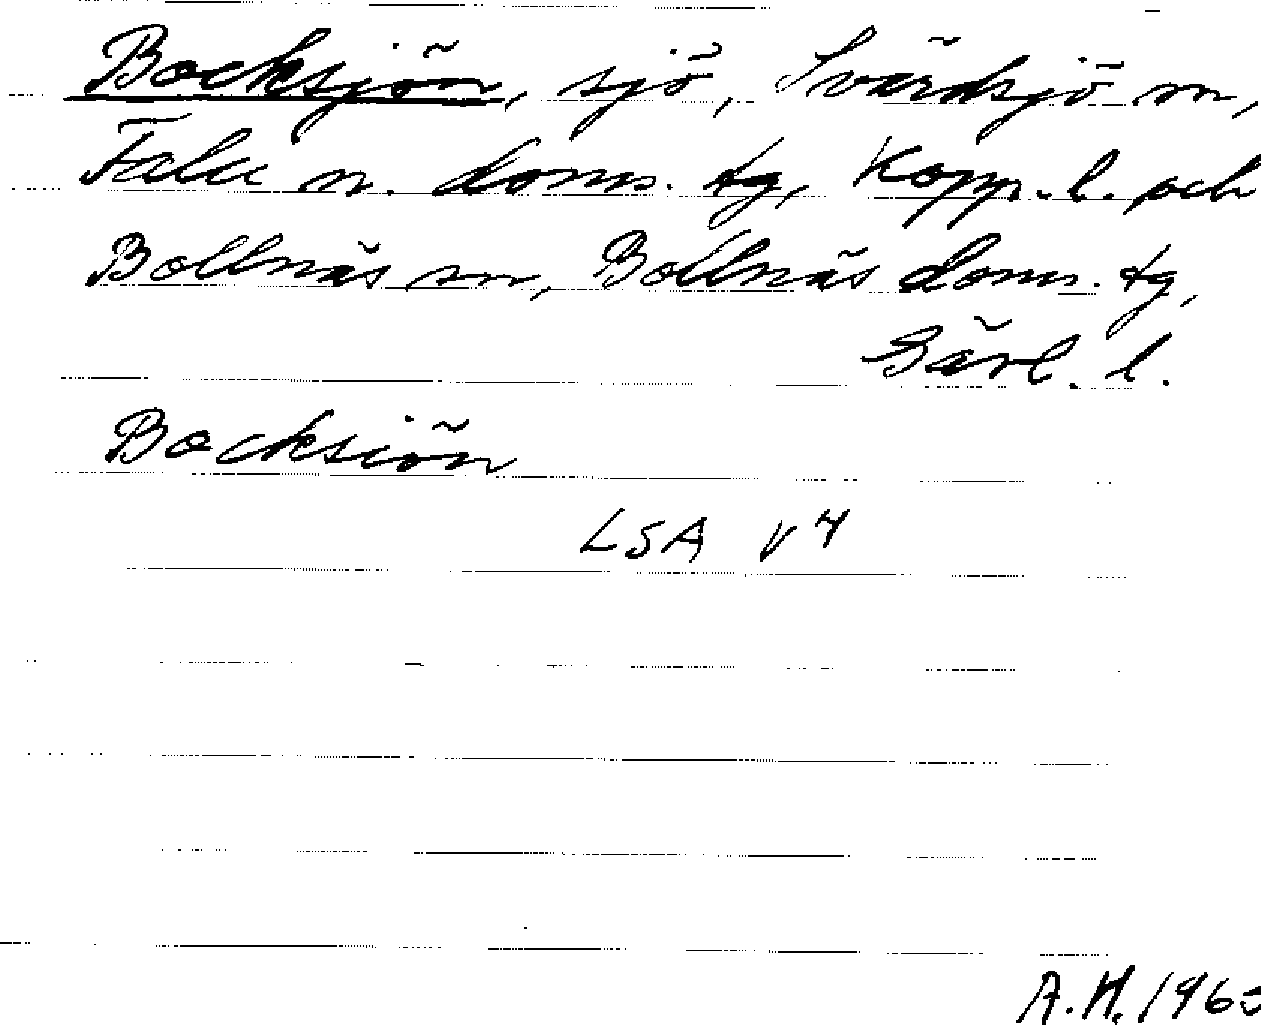 Bocksjön, sjö, Svärdsjö sn,
Falu n. doms. tg, Kopp. l. och
Bollnäs sn, Bollnäs doms. tg,
Gävl. l.
Bocksiön
LSA V4
A.H. 196